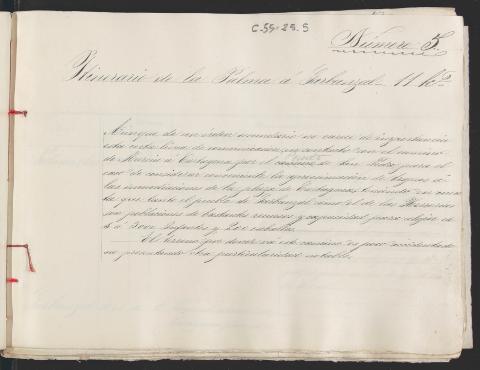 C-59-29.5
Número 5.
Itinerario de la Palma á Garbanzal. 11 K.
Aunque de un orden secundario no carece de importancia
esta corta línea de comunicación en contacto con el camino
de Murcia á Cartagena por el de San Pedro para el
caso de considerar conveniente la aproximación de tropas á
las inmediaciones de la plaza de Cartagena, teniendo en cuen
ta que tanto el pueblo de Garbanzal como el de las Herrerías
son poblaciones de bastantes recursos y capacidad para alojar de
á 3000 infantes y 200 caballos.
El terreno por donde va este camino es poco accidentado
no presentando otra particularidad notable.